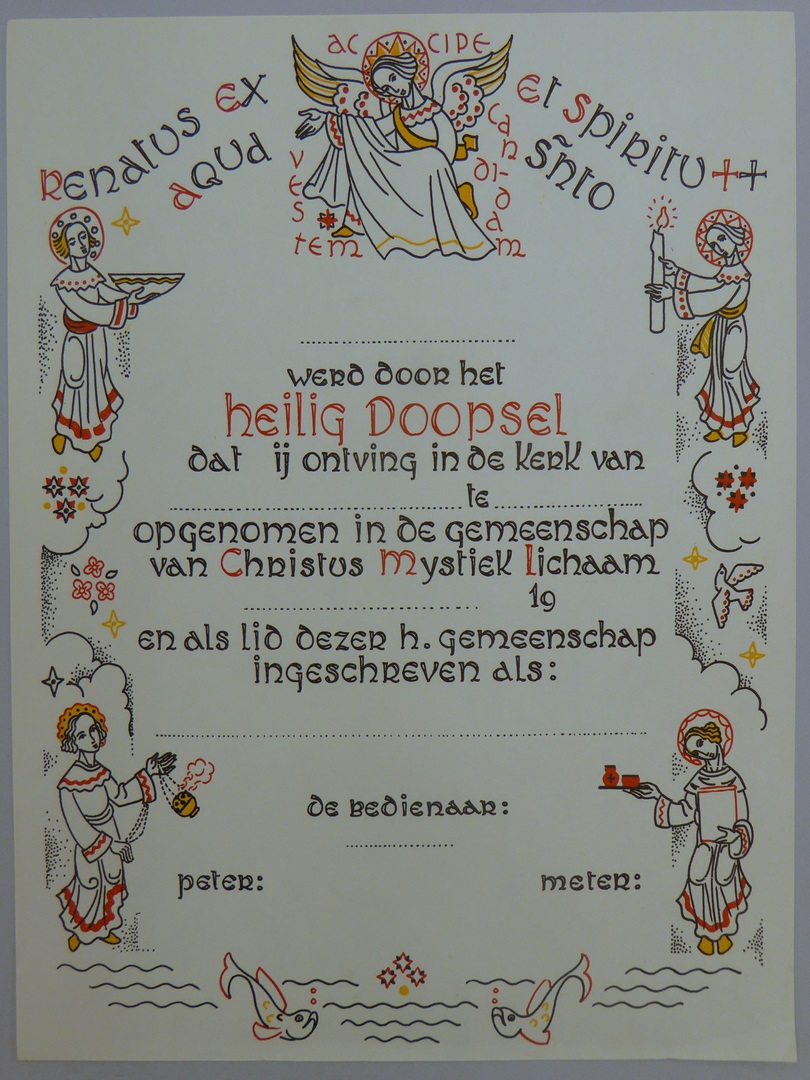 Renatus ex aqua
et Spiritu ++ sñto
accipe
vestem
candidam
werd door het
heilig Doopsel
dat ij ontving in de kerk van
te
opgenomen in de gemeenschap
van Christus Mystiek lichaam
19
en als lid dezer h. gemeenschap
ingeschreven als:
de bedienaar:
peter: meter: